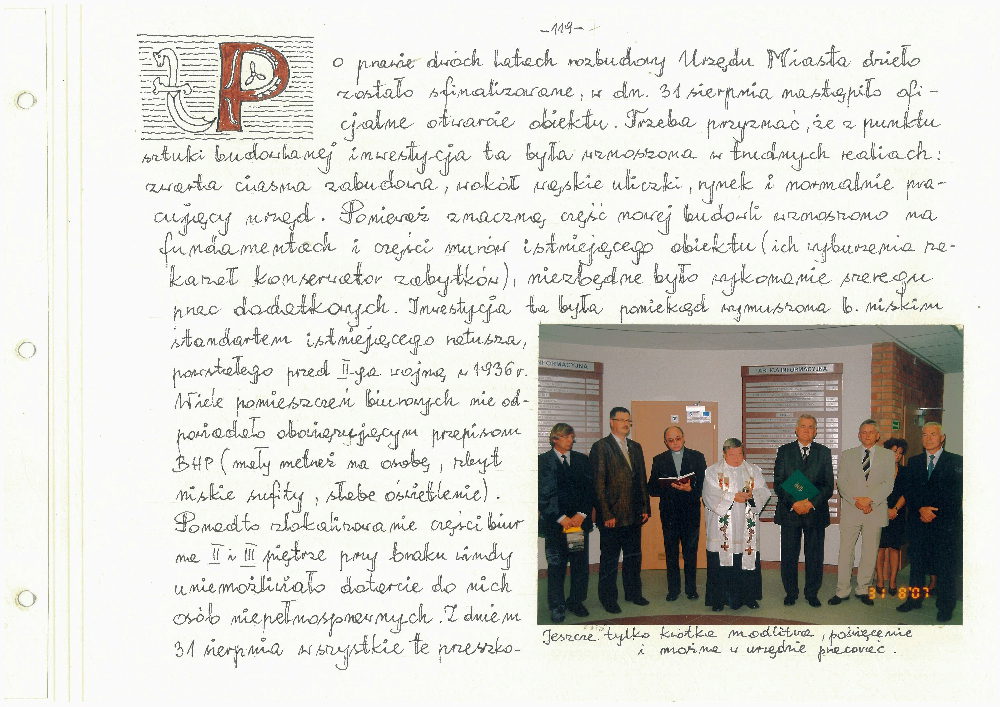 -119-
Po prawie dwóch latach rozbudowy Urzędu Miasta dzieło
zostało sfinalizowane, w dn. 31 sierpnia nastąpiło ofi-
cjalne otwarcie obiektu. Trzeba przyznać, że z punktu
sztuki budowlanej inwestycja ta była wznoszona w trudnych realiach:
zwarta ciasna zabudowa, wokół wąskie uliczki, rynek i normalnie pra-
cujący urząd. Ponieważ znaczną część nowej budowli wznoszono na
fundamentach i części murów istniejącego obiektu (ich wyburzenia za-
kazał konserwator zabytków), niezbędne było wykonanie szeregu
prac dodatkowych. Inwestycja ta była poniekąd wymuszona b. niskim
standartem istniejącego ratusza,
powstałego przed II-gą wojną w 1936 r.
Wiele pomieszczeń biurowych nie od-
powiadało obowiązującym przepisom
BHP (mały metraż na osobę, zbyt
niskie sufity, słabe oświetlenie).
Ponadto zlokalizowanie części biur
na II i III piętrze przy braku windy
uniemożliwiało dotarcie do nich
osób niepełnosprawnych. Z dniem
31 sierpnia wszystkie te przeszko-
INFORMACYJNA
TABLICA INFORMACYJNA
31 8'07
Jeszcze tylko krótka modlitwa, poświęcenie
i można w urzędzie pracować.